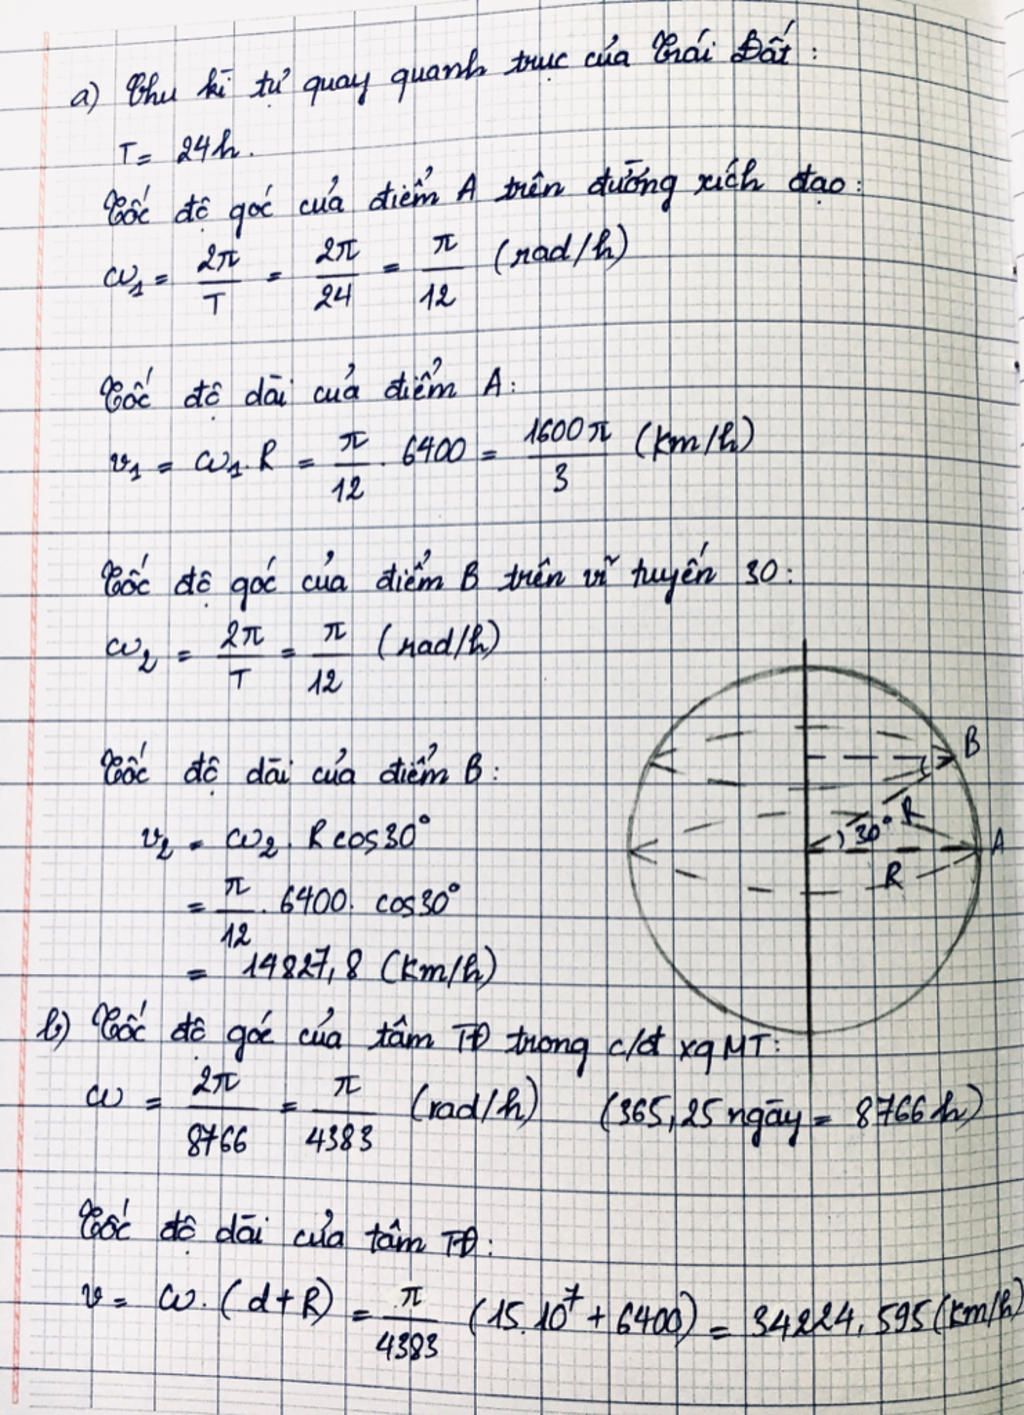 a) Chu kì tự quay quanh trục của Trái Đất:
T = 24h.
Tốc độ góc của điểm A trên đường xích đạo:
ω₁ = 2π/T = 2π/24 = π/12 (rad/h)
Tốc độ dài của điểm A:
v₁ = ω₁.R = π/12 . 6400 = 1600π/3 (km/h)
Tốc độ góc của điểm B trên vĩ tuyến 30:
ω₂ = 2π/T = π/12 (rad/h)
Tốc độ dài của điểm B:
v₂ = ω₂ . R cos30°
= π/12 . 6400 . cos30°
= 14827,8 (km/h)
B
R
30°
A
R
b) Tốc độ góc của tâm TĐ trong c/đ xq MT:
ω = 2π/8766 = π/4383 (rad/h) (365,25 ngày = 8766 h)
Tốc độ dài của tâm TĐ:
v = ω . (d+R) = π/4383 (15.10⁷ + 6400) = 34224,595 (km/h)